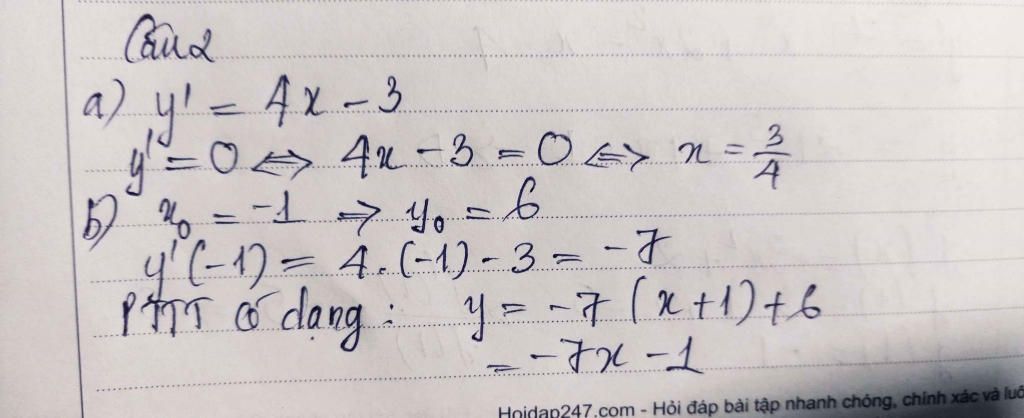 Câu 2
a) y' = 4x - 3
y' = 0 ⇔ 4x - 3 = 0 ⇔ x = 3/4
b) x₀ = -1 ⇒ y₀ = 6
y'(-1) = 4.(-1) - 3 = -7
PTTT có dạng : y = -7(x+1)+6
= -7x - 1
Hoidap247.com - Hỏi đáp bài tập nhanh chóng, chính xác và